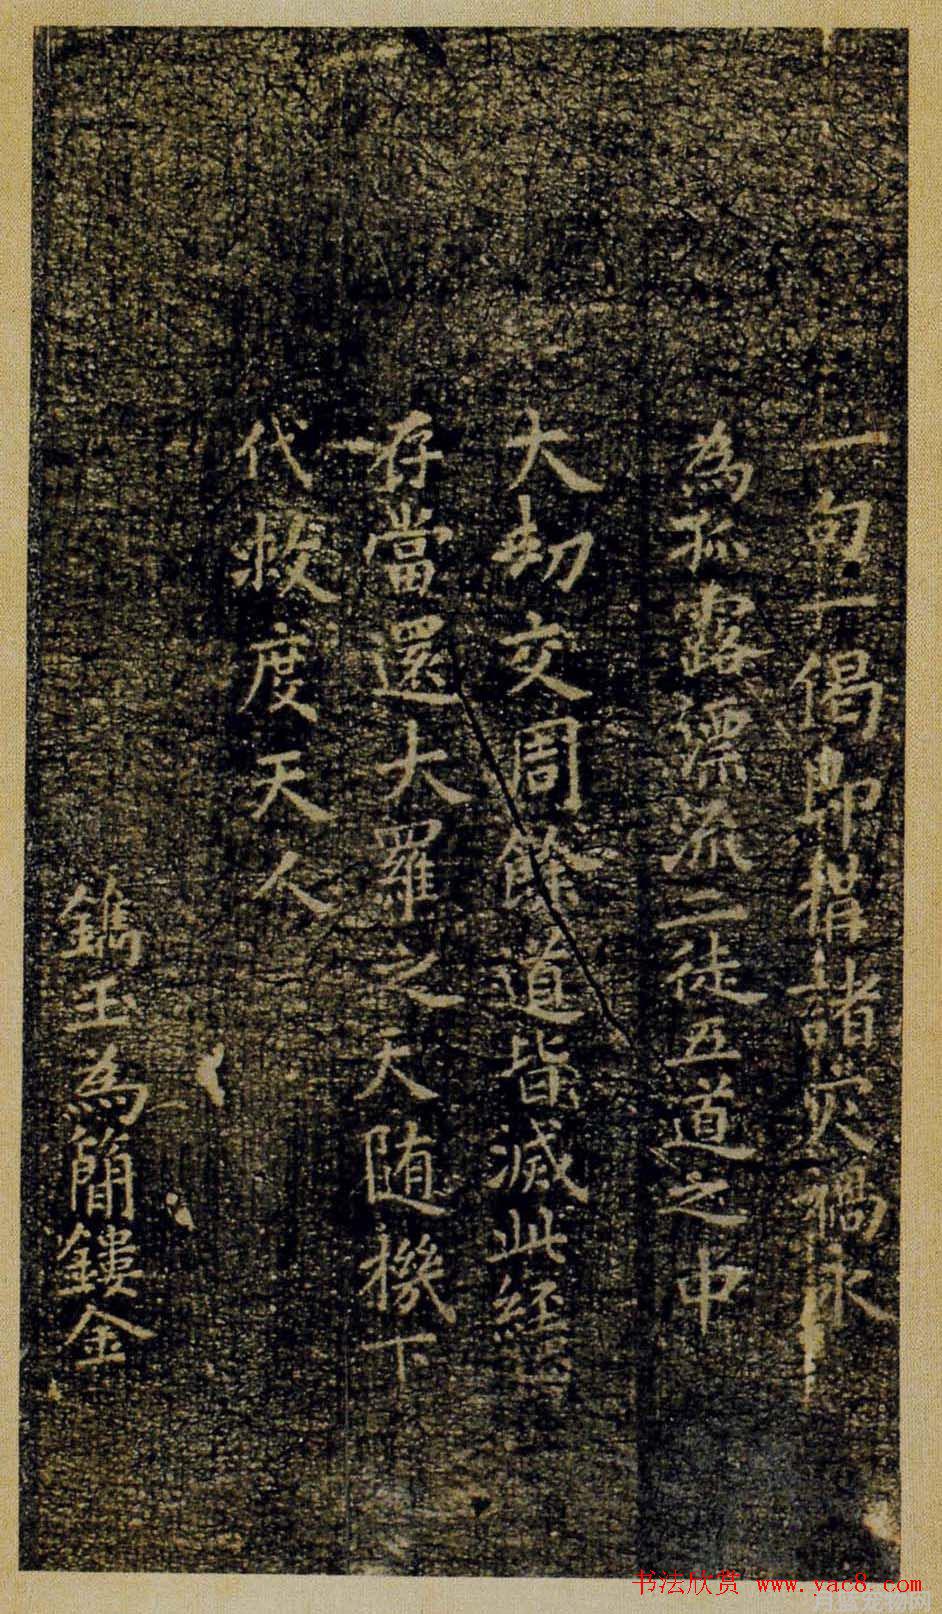 一句一偈即捍諸灾禍永
為孤露漂流二徒五道之中
大劫交周餘道皆滅此經
存當還大羅之天随機下
代救度天人
鐫玉為簡鏤金
书法欣赏 www.yac8.com